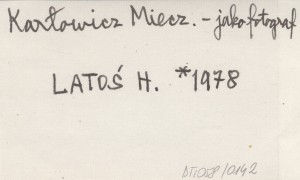 Karłowicz Miecz. - jako fotograf
LATOŚ H. *1978
DT1028/0142